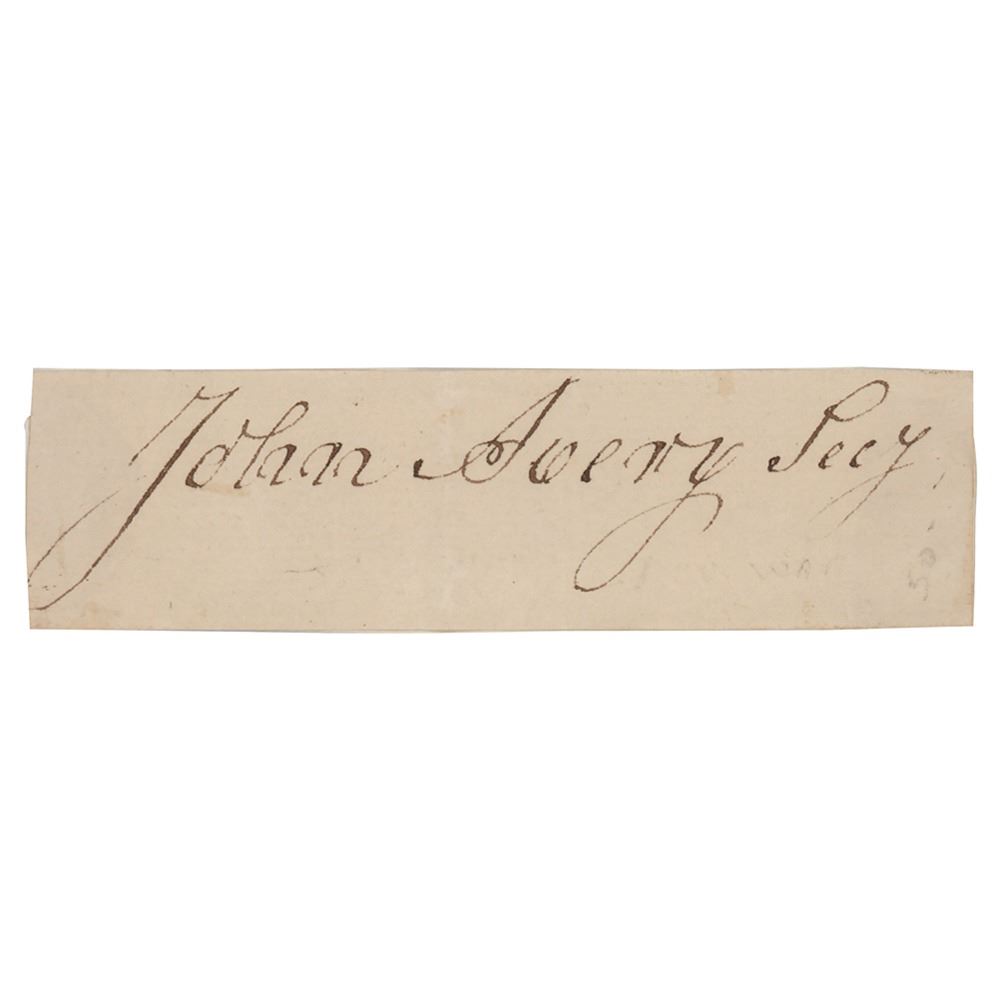 John Avery Secy